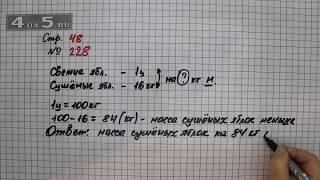 4DA5.RU
Стр. 48
№ 228
Свежие ябл. - 1ц
Сушёные ябл. - 16кг
на ? кг м.
1ц = 100кг
100-16 = 84 (кг) - масса сушёных яблок меньше
Ответ: масса сушёных яблок на 84 кг